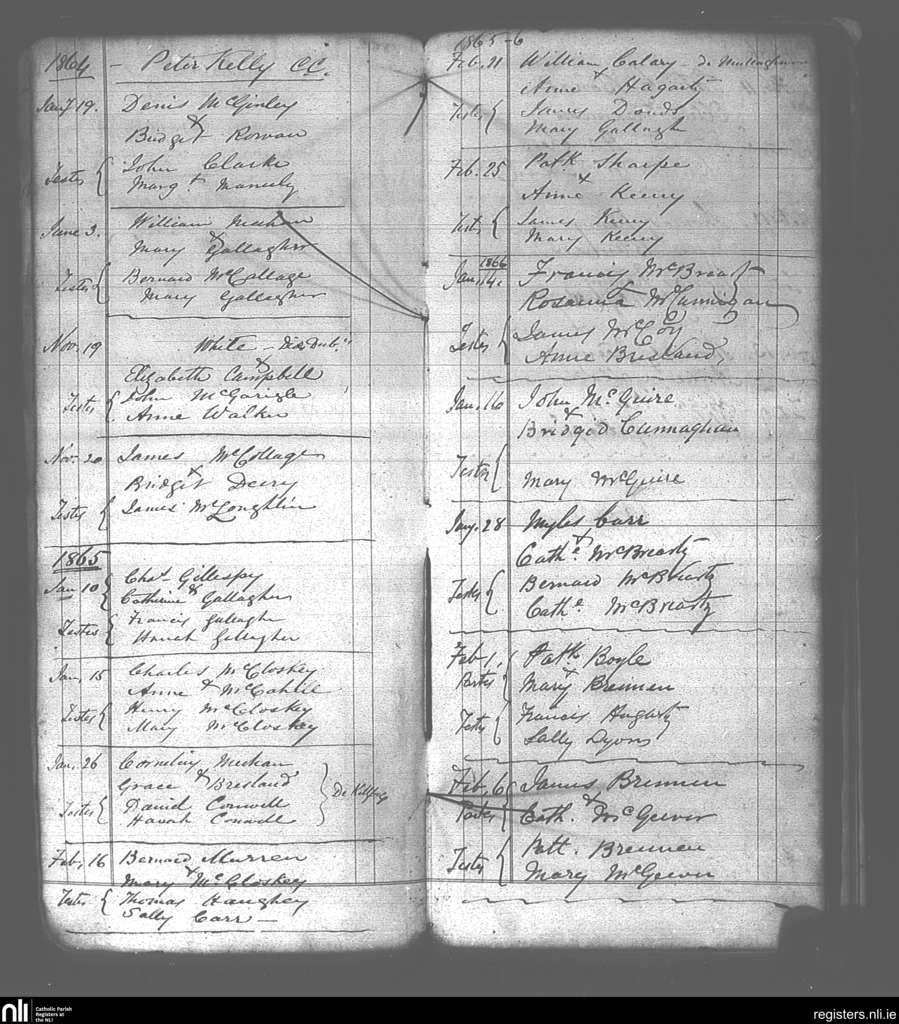 1864 - Peter Kelly CC.
Jany 19. Denis McGinley
x
Bridget Rowan
Testes { John Clarke
Margt
June 3. William Meehan
x
Mary Gallagher
Testes { Bernard McCollage
Mary Gallagher
Nov. 19 White -
x
Elizabeth Campbell
Testes { John McGarigle
Anne Walker
Nov. 20 James McCollage
x
Bridget Deery
Testes { James McLoughlin
1865
Jan 10 { Chas Gillespy
Catherine x Gallagher
Testes { Francis Gallagher
Hanah Gallagher
Jan, 15 Charles McCloskey
Anne x McCahill
Testes { Henry McCloskey
Mary McCloskey
Jan, 26 Cornelius Meehan
Grace x Bresland
Testes { Daniel Conwell
Hanah Conwell
Feb, 16 Bernard Murren
x
Mary McCloskey
Testes { Thomas Haughey
Sally Carr -
1865-6
Feb. 11 William Calary de
x
Anne Hagarty
Testes { James
Mary Gallagh
Feb. 25 Patk Sharpe
x
Anne Keeny
Testes { James Keeny
Mary Keeny
1866
Jan. 14. Francis McBrearty
x
Rosanna McCunnigan
Testes { James McCoy
Anne Bresland
Jan, 16 John McGuire
x
Bridgid Cunnaghan
Testes {
Mary McGuire
Jany. 28 Myles Carr
x
Cathe McBrearty
Testes { Bernard McBrearty
Cathe McBrearty
Feb 1, { Patk Boyle
x
Partes Mary Brennen
Testes { Francis Hagarty
Sally Dyons
Feb, 6 James Brennen
x
Partes { Cath. McGeever
Testes { Patt. Brennen
Mary McGeever
nli Catholic Parish
Registers at
the NLI
registers.nli.ie